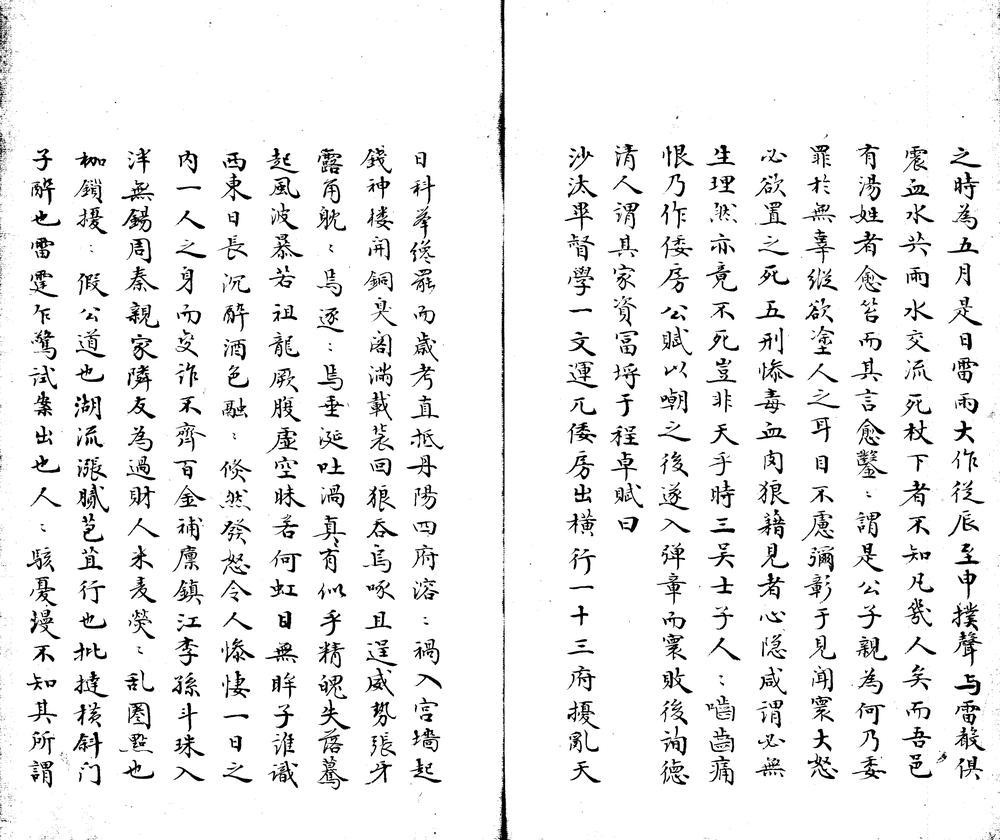 之時為五月是日雷雨大作従辰至申撲聲与雷殽俱
震血水共雨水交流死杖下者不知凡幾人矣而吾邑
有湯姓者愈笞而其言愈鑿〻謂是公子親為何乃委
罪於無辜縱欲塗人之耳目不慮彌彰于見闻寰大怒
必欲置之死五刑慘毒血肉狼藉見者心隐咸謂必無
生理然亦竟不死豈非天乎時三吴士子人〻嚙齒痛
恨乃作倭房公賦以嘲之後遂入弹章而寰敗後詢德
清人謂其家資冨埒于程卓賦曰
沙汰畢督學一文運兀倭房出橫行一十三府擾亂天
日科舉纔罷而歲考直抵丹陽四府溶〻禍入宫墻起
錢神楼開銅臭阁満載装回狼吞烏啄且逞威势張牙
露角躭〻焉逐〻焉垂涎吐渦真〻有似乎精魄失落驀
起風波暴若祖龍厥腹虛空昧若何虹日無眸子谁識
西東日長沉醉酒色融〻倐然發怒令人慘悽一日之
内一人之身而变诈不齊百金補廪鎮江李孫斗珠入
泮無錫周秦親家隣友為過財人米麦熒〻乱圏㸃也
枷鎖擾〻假公道也湖流漲膩芭苴行也批撻橫斜门
子醉也雷霆乍驚試案出也人〻駭憂漫不知其所謂